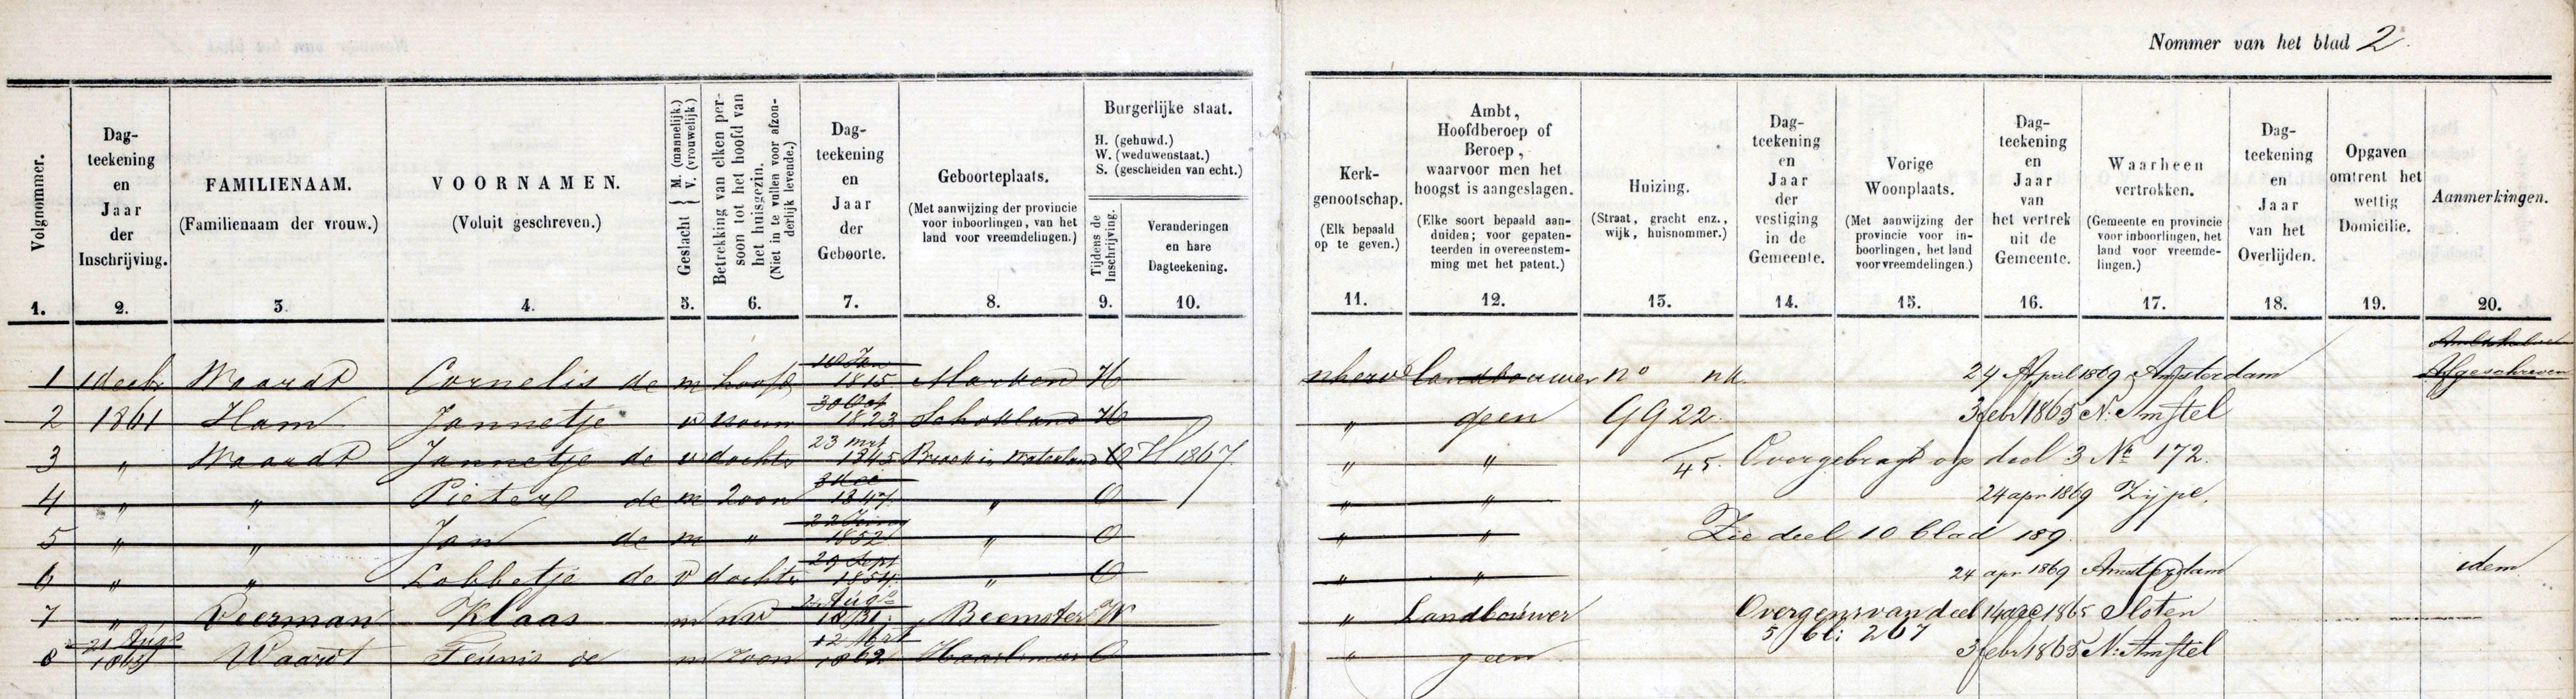 Nommer van het blad 2.
Volgnommer.
Dag-
teekening
en
Jaar
der
Inschrijving.
FAMILIENAAM.
(Familienaam der vrouw.)
VOORNAMEN.
(Voluit geschreven.)
Geslacht { M. (mannelijk.)
V. (vrouwelijk.)
Betrekking van elken per-
soon tot het hoofd van
het huisgezin.
(Niet in te vullen voor afzon-
derlijk levende.)
Dag-
teekening
en
Jaar
der
Geboorte.
Geboorteplaats.
(Met aanwijzing der provincie
voor inboorlingen, van het
land voor vreemdelingen.)
Burgerlijke staat.
H. (gehuwd.)
W. (weduwenstaat.)
S. (gescheiden van echt.)
Tijdens de
Inschrijving.
Veranderingen
en hare
Dagteekening.
Kerk-
genootschap.
(Elk bepaald
op te geven.)
Ambt,
Hoofdberoep of
Beroep,
waarvoor men het
hoogst is aangeslagen.
(Elke soort bepaald aan-
duiden; voor gepaten-
teerden in overeenstem-
ming met het patent.)
Huizing.
(Straat, gracht enz.,
wijk, huisnommer.)
Dag-
teekening
en
Jaar
der
vestiging
in de
Gemeente.
Vorige
Woonplaats.
(Met aanwijzing der
provincie voor in-
boorlingen, het land
voor vreemdelingen.)
Dag-
teekening
en
Jaar
van
het vertrek
uit de
Gemeente.
Waarheen
vertrokken.
(Gemeente en provincie
voor inboorlingen, het
land voor vreemde-
lingen.)
Dag-
teekening
en
Jaar
van het
Overlijden.
Opgaven
omtrent het
wettig
Domicilie.
Aanmerkingen.
1. 2. 3. 4. 5. 6. 7. 8. 9. 10. 11. 12. 13. 14. 15. 16. 17. 18. 19. 20.
1 1 decbr Waardt Cornelis de m hoofd 10 Jan 1815 Marken H nherv landbouwer no 24 April 1869 Amsterdam Afgeschreven
2 1861 Ham Jannetje v vrouw 30 Oct 1823 Schokland H " geen GG 22. 3 febr 1865 N. Amstel
3 " Waardt Jannetje de v dochtr 23 mrt 1845 Broek in Waterland O H 1867 " " /45. Overgebragt op deel 3 No 172.
4 " " Pieter de m zoon 1847 " O " " 24 apr 1869 Zijpe.
5 " " Jan de m " 1852 " O " " Zie deel 10 blad 189
6 " " Lobbetje de v dochtr 29 Sept 1854 " O " " 24 apr 1869 Amsterdam idem
7 " Veerman Klaas m Aug 1831 Beemster W " Landbouwer Overgenr van deel 5 bl: 267 14 dec 1865 Sloten
8 21 Augs Waardt Teunis de m zoon 12 Mrt 1862 O " geen 3 febr 1865 N: Amstel